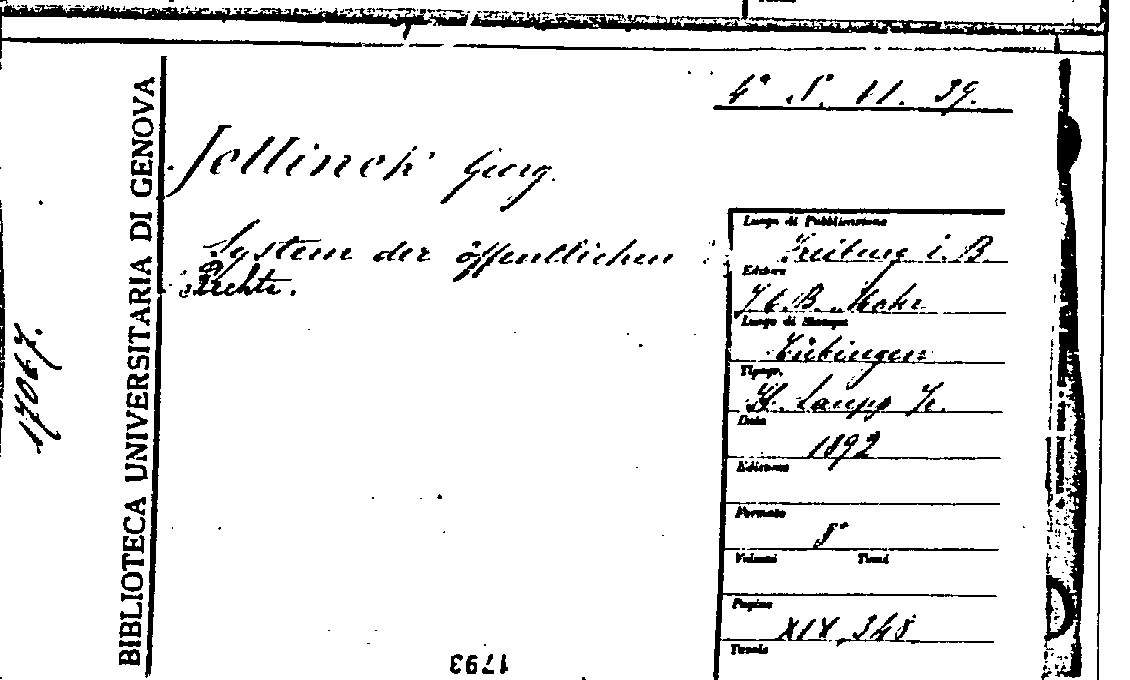 4° S. 11. 39.
Jellinek Georg.
System der öffentlichen
Rechte.
BIBLIOTECA UNIVERSITARIA DI GENOVA
17067.
Luogo di Pubblicazione
Freiburg i. B
Editore
J. C. B. Mohr
Luogo di Stampa
Tübingen
Tipogr.
H. Laupp Jr.
Data
1892
Edizione
Formato
8°
Volumi Tomi
Pagine
XIX, 348
Tavole
1793